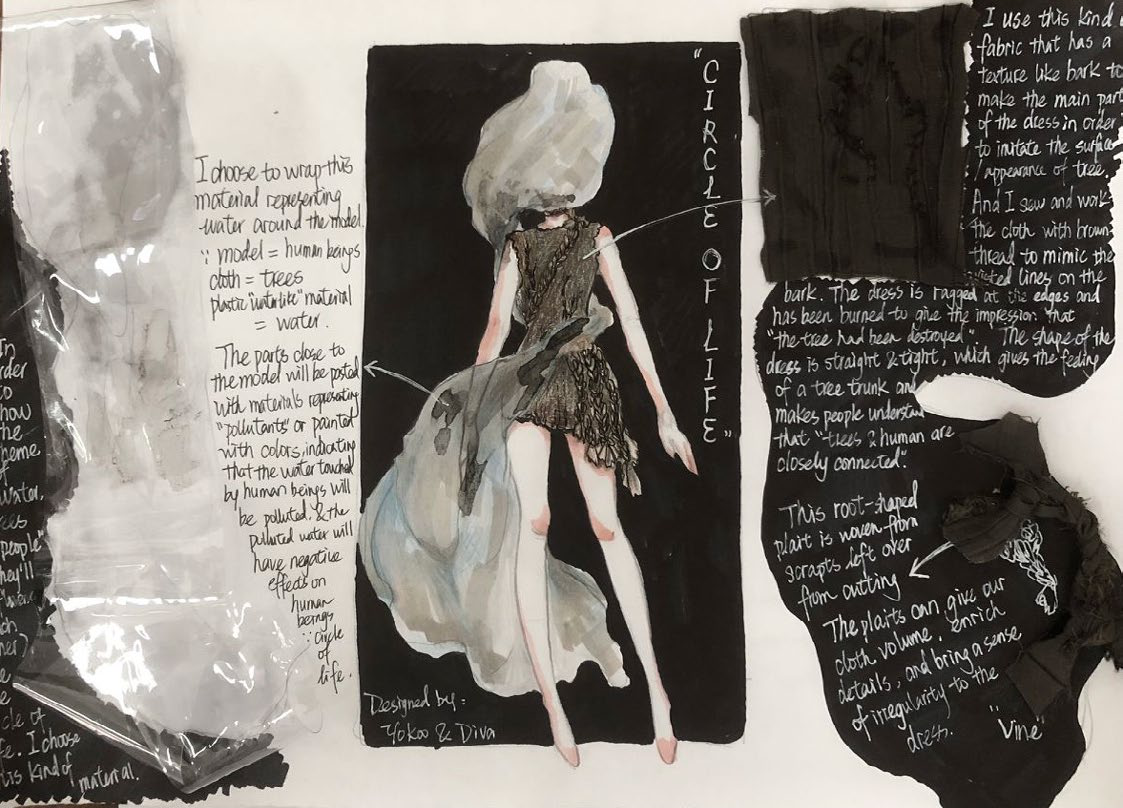 In
order
to
show
the
theme
of
water,
trees
people"
they'll
I choose
this kind of material.
I choose to wrap this
material representing
water around the model.
∵ model = human beings
cloth = trees
plastic "waterlike" material
= water.
The parts close to
the model will be posted
with materials representing
"pollutants" or painted
with colors, indicating
that the water touched
by human beings will
be polluted. & the
polluted water will
have negative
effects on
human
beings
∵ circle
of
life.
"CIRCLE OF LIFE"
Designed by:
Yokoo & Diva
I use this kind
fabric that has a
texture like bark to
make the main part
of the dress in order
to imitate the surface
/appearance of tree.
And I sew and work
the cloth with brown
thread to mimic the
lines on the
bark. The dress is ragged at the edges and
has been burned to give the impression that
"the tree had been destroyed". The shape of the
dress is straight & tight, which gives the feeling
of a tree trunk and
makes people understand
that "trees & human are
closely connected".
This root-shaped
plait is woven from
scrapts left over
from cutting
The plaits can give our
cloth volume, enrich
details, and bring a sense
of irregularity to the
dress.
"Vine"